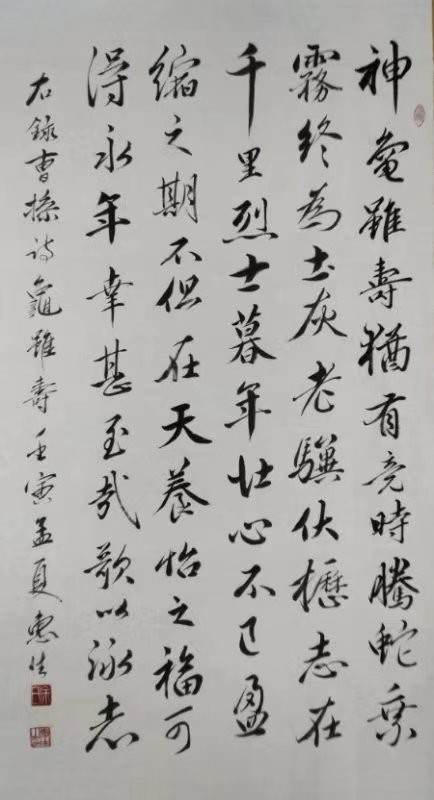 神龜雖壽猶有竟時騰蛇乘
霧終為土灰老驥伏櫪志在
千里烈士暮年壯心不已盈
縮之期不但在天養怡之福可
得永年幸甚至哉歌以詠志
右錄曹操詩龜雖壽壬寅孟夏惠生